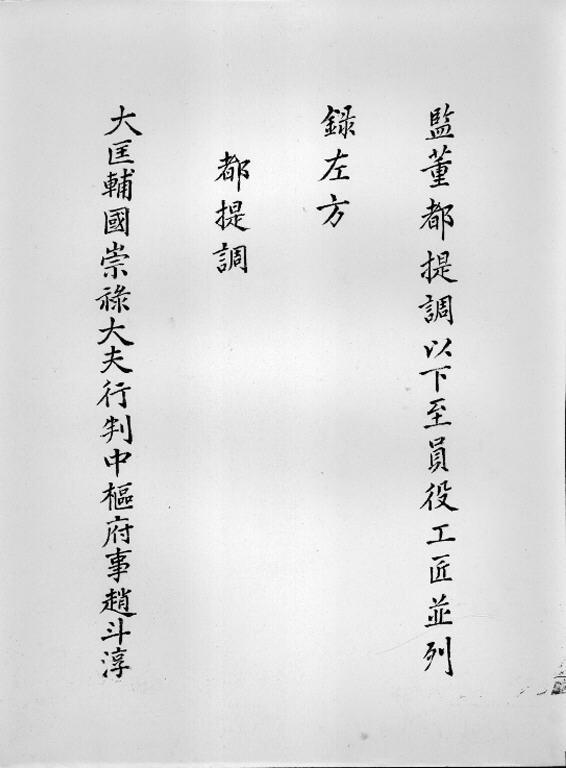 監董都提調以下至員役工匠並列
録左方
都提調
大匡輔國崇祿大夫行判中樞府事趙斗淳